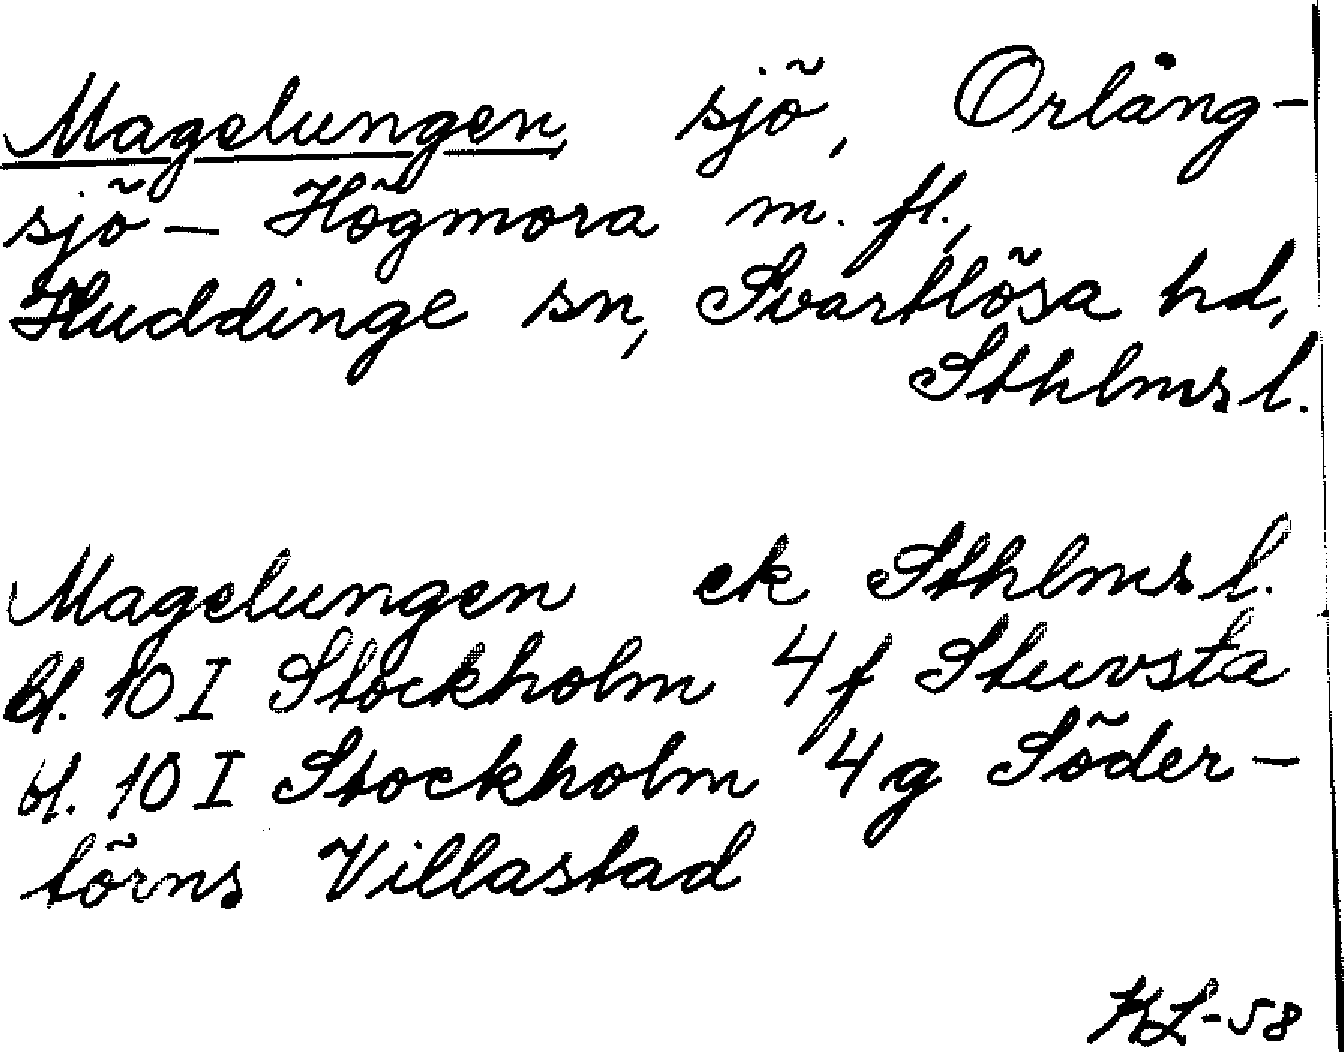 Magelungen, sjö, Orlång-
sjö - Högmora m. fl.,
Huddinge sn, Svartlösa hd,
Sthlms l.
Magelungen ek Sthlms l.
bl. 10 I Stockholm 4 f Stuvsta
bl. 10 I Stockholm 4 g Söder-
törns Villastad
KL-58